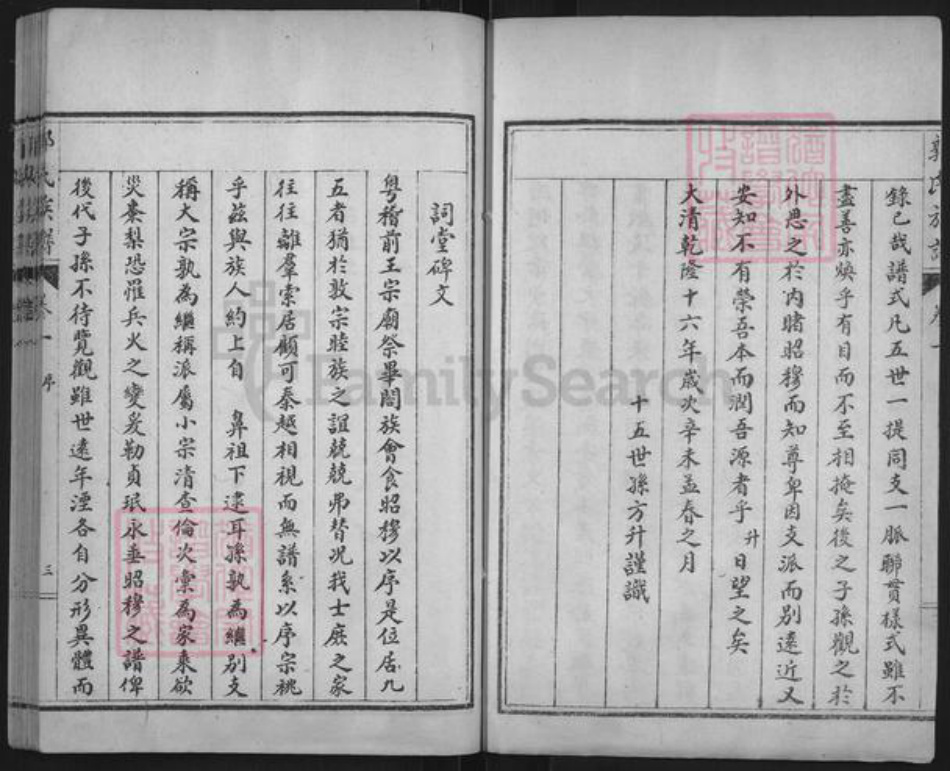 錄已哉譜式凡五世一提同支一脈聯貫樣式雖不
盡善亦煥乎有目而不至相掩矣後之子孫觀之於
外思之於內睹昭穆而知尊卑因支派而別遠近又
安知不有榮吾本而潤吾源者乎升日望之矣
大清乾隆十六年歲次辛未孟春之月
十五世孫方升謹識
詞堂碑文
粵稽前王宗廟祭畢闔族會食昭穆以序是位居九
五者猶於敦宗睦族之誼兢兢弗替况我士庶之家
往往離羣索居顧可秦越相視而無譜系以序宗祧
乎茲與族人約上自 鼻祖下逮耳孫孰為繼別支
稱大宗孰為繼稱派屬小宗清查倫次彙為家乘欲
災棗梨恐罹兵火之變爰勒貞珉永垂昭穆之譜俾
後代子孫不待覽觀雖世遠年湮各自分形異體而
卷一 序 三
FamilySearch